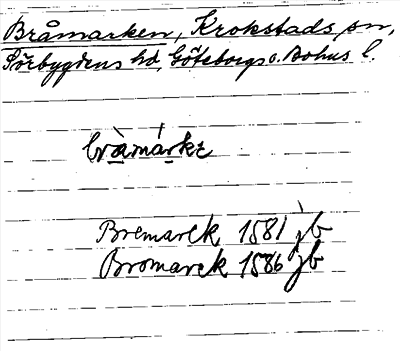 Bråmarken, Krokstads sn,
Sörbygdens hd, Göteborgs o. Bohus l.
bràmárkɛ
Bremarck 1581 jb
Bromarck 1586 jb